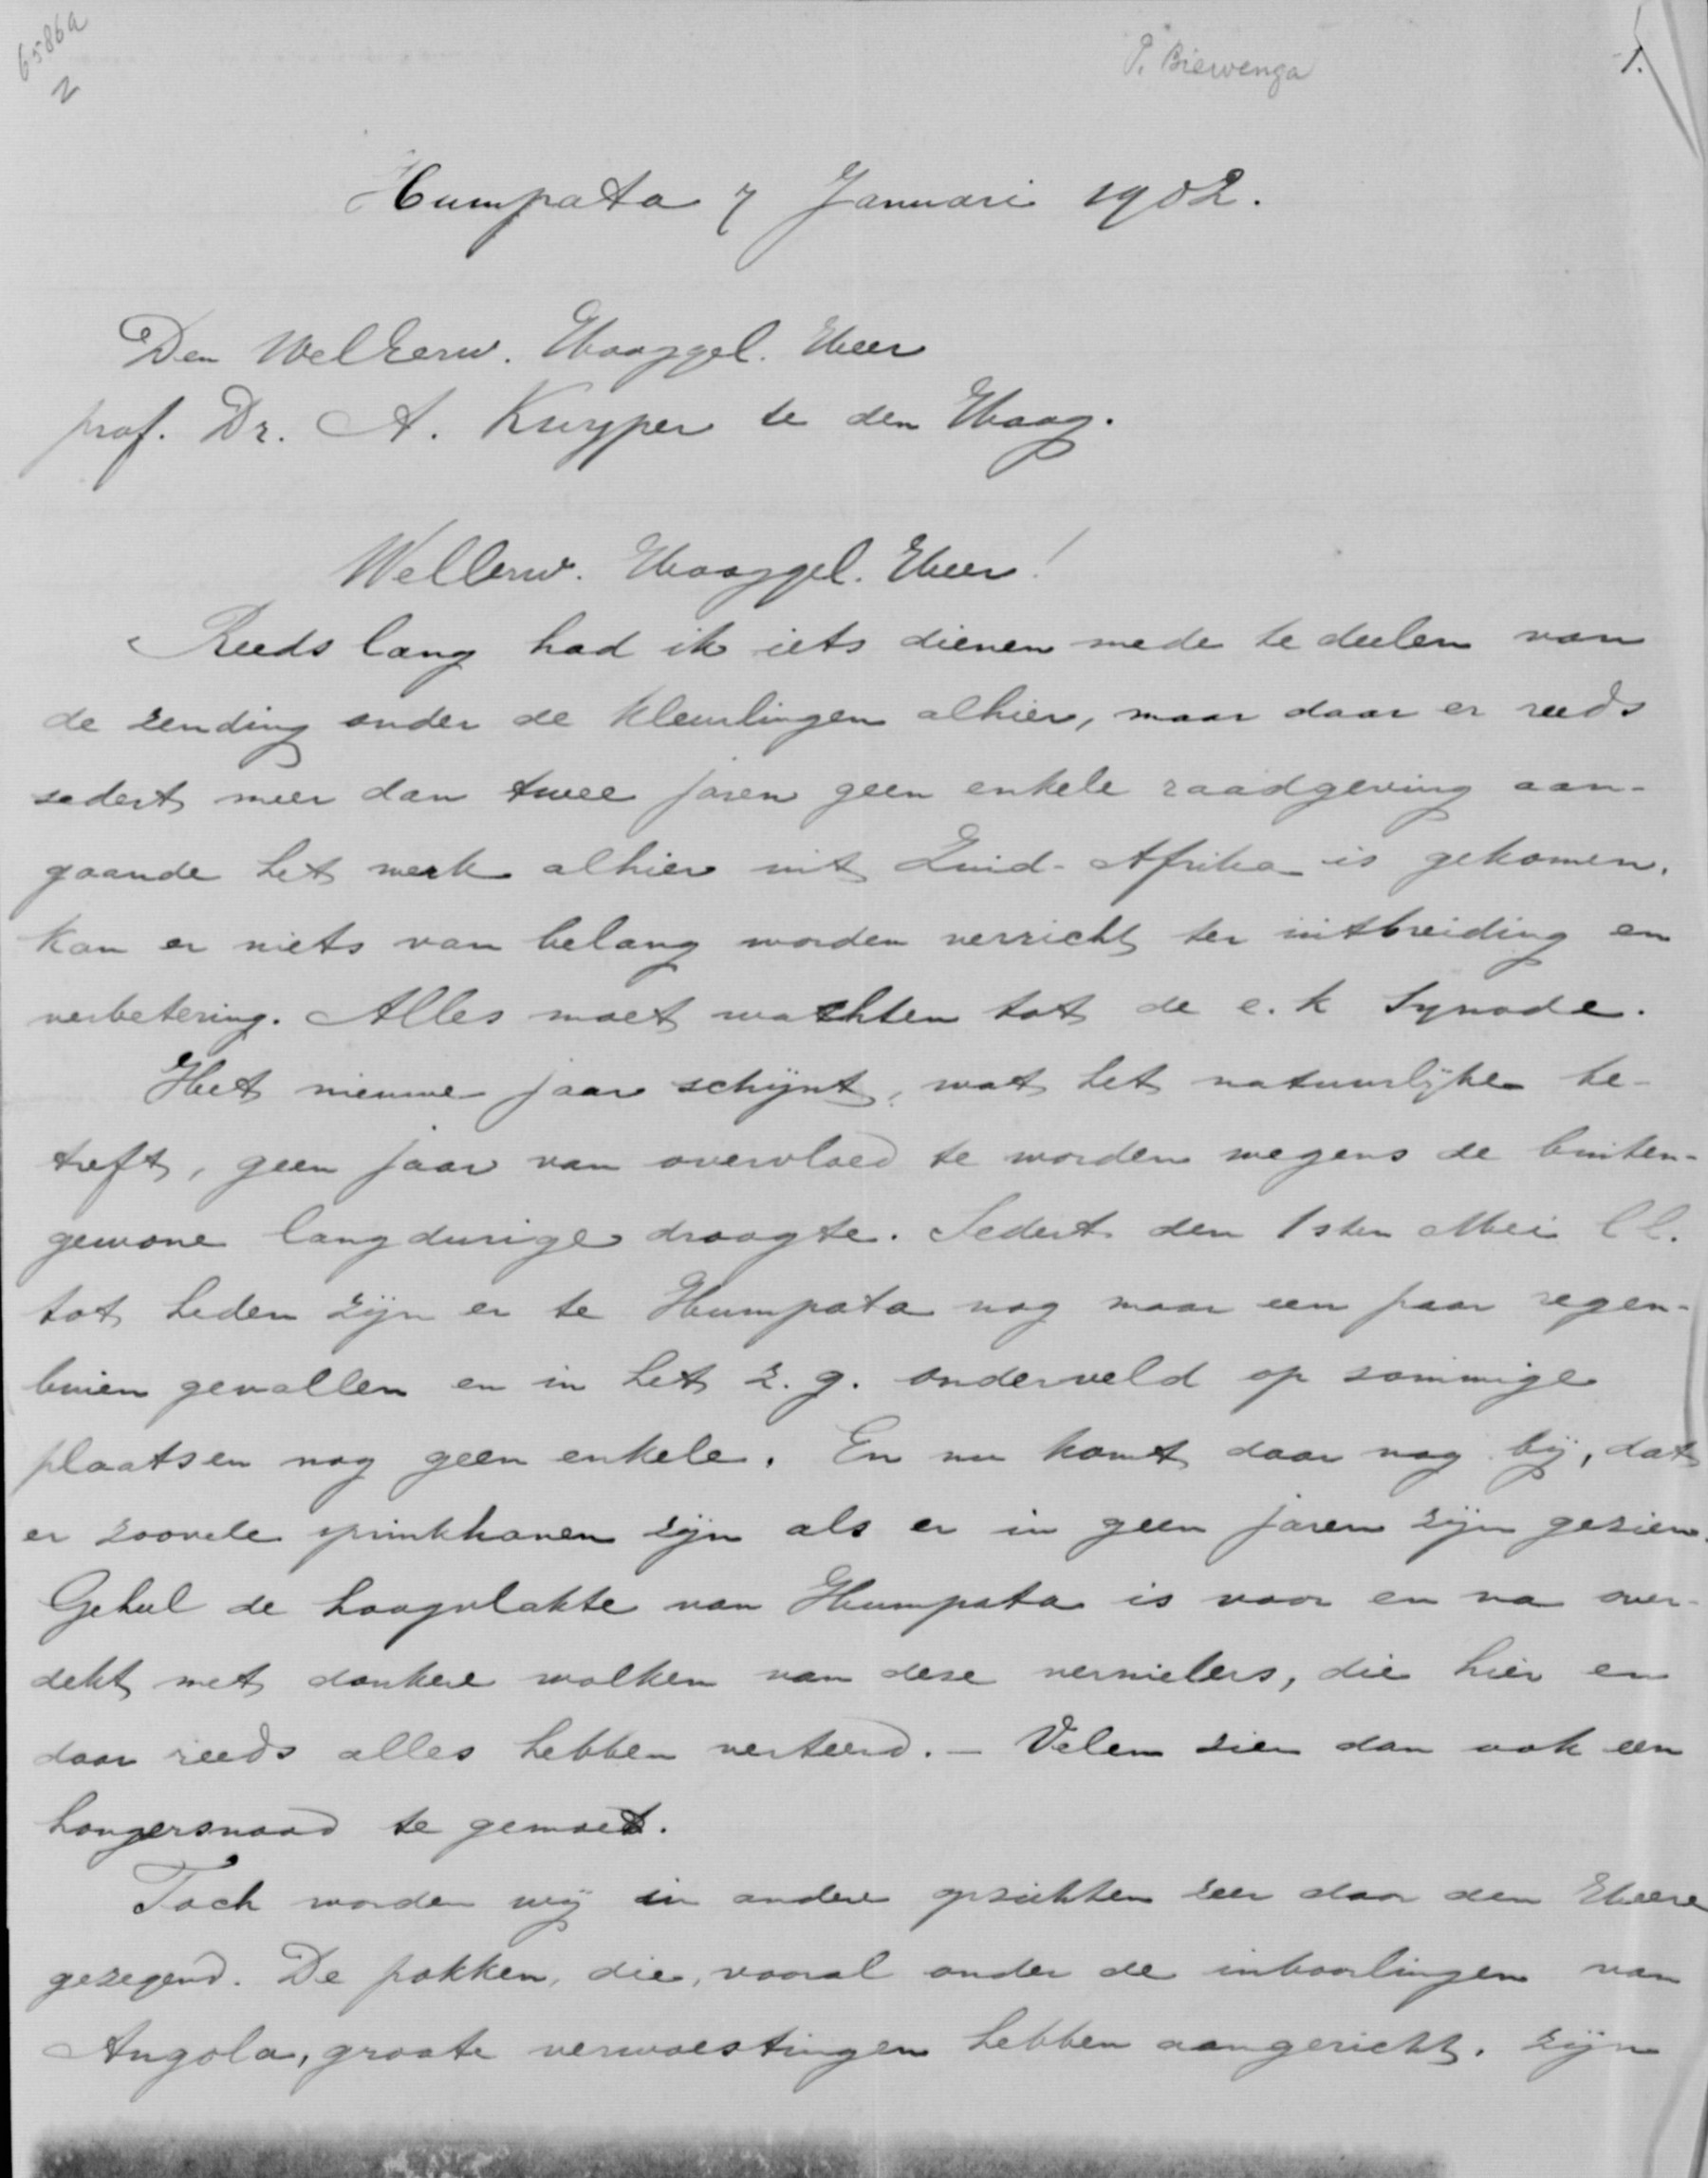 6586a
2
P. Biewenga
1.
Humpata 7 Januari 1902.
Den WelEerw. Hooggel. Heer
prof. Dr. A. Kuyper te den Haag.
WelEerw. Hooggel. Heer!
Reeds lang had ik iets dienen mede te deelen van
de zending onder de kleurlingen alhier, maar daar er reeds
sedert meer dan twee jaren geen enkele raadgeving aan-
gaande het werk alhier uit Zuid-Afrika is gekomen,
kan er niets van belang worden verricht ter uitbreiding en
verbetering. Alles moet wachten tot de e.k Synode.
Het nieuwe jaar schijnt, wat het natuurlijke be-
treft, geen jaar van overvloed te worden wegens de buiten-
gewone langdurige droogte. Sedert den 1sten Mei ll.
tot heden zijn er te Humpata nog maar een paar regen-
buien gevallen en in het z.g. onderveld op sommige
plaatsen nog geen enkele. En nu komt daar nog bij, dat
er zoovele sprinkhanen zijn als er in geen jaren zijn gezien.
Geheel de hoogvlakte van Humpata is voor en na over-
dekt met donkere wolken van deze vernielers, die hier en
daar reeds alles hebben verteerd. - Velen zien dan ook een
hongersnood te gemoet.
Toch worden wij in andere opzichten zeer door den Heere
gezegend. De pokken, die, vooral onder de inboorlingen van
Angola, groote verwoestingen hebben aangericht, zijn